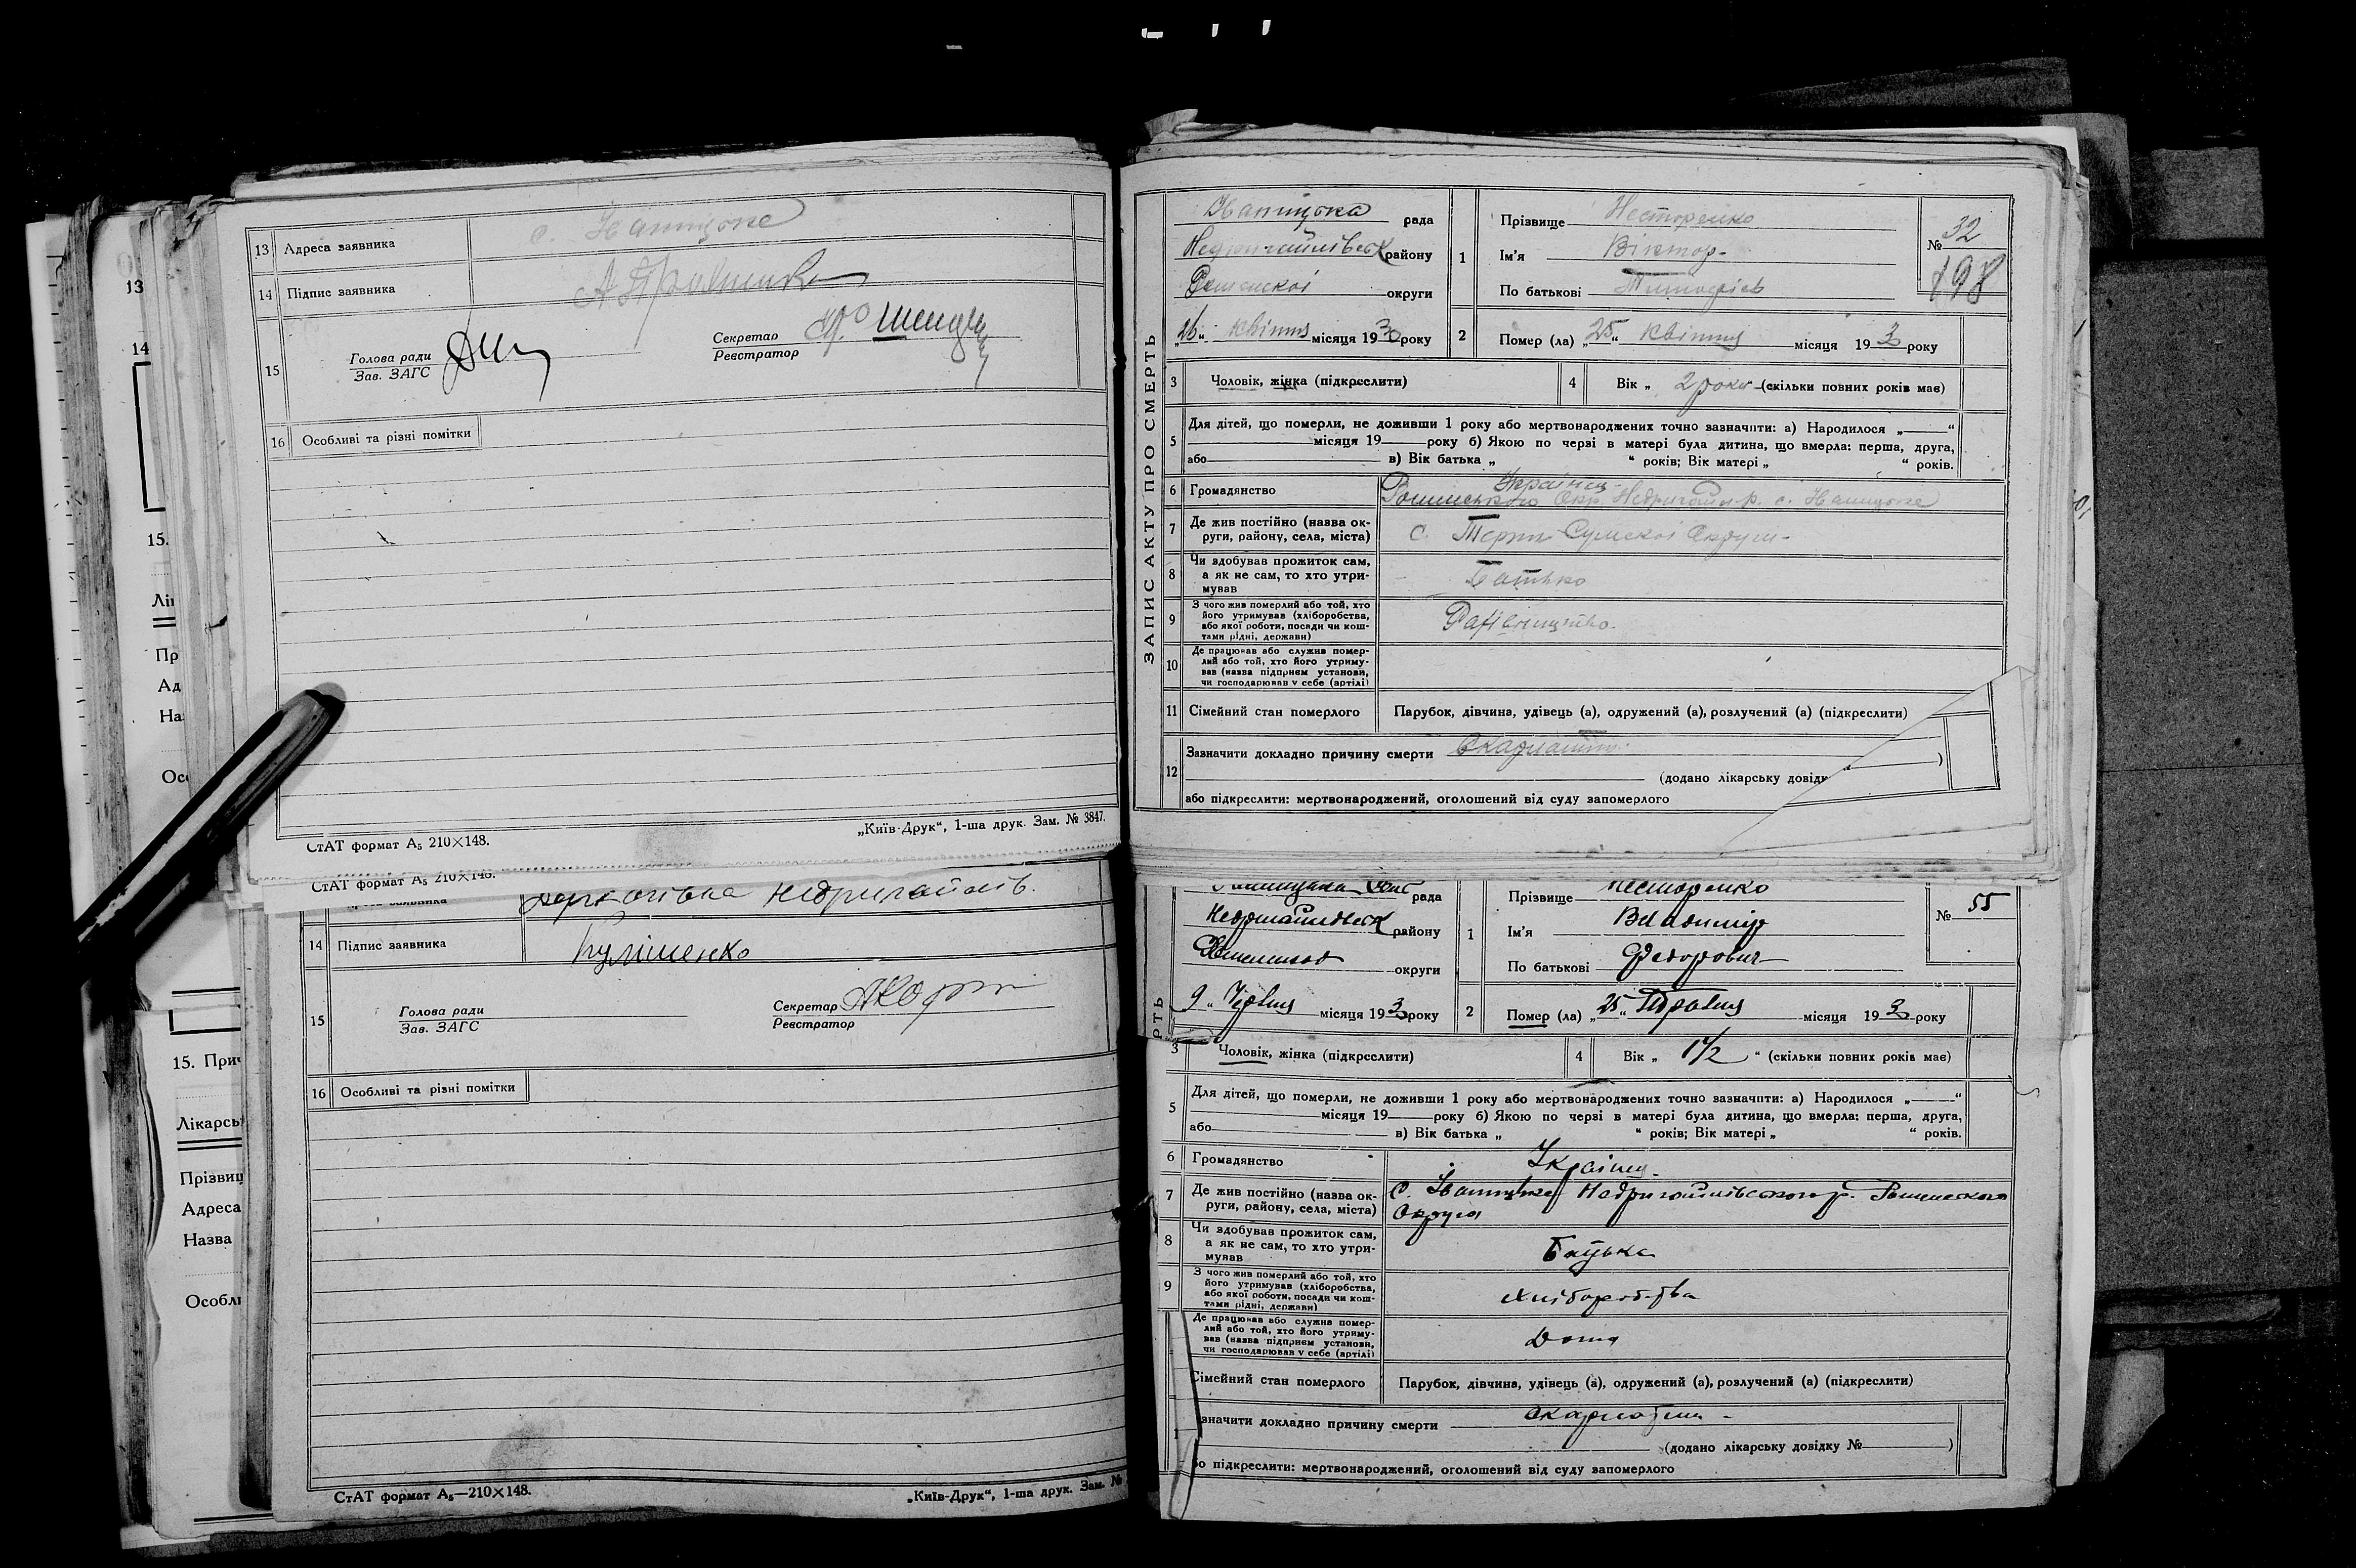 13 Адреса заявника
с. Іваницьке
14 Підпис заявника
15
Голова ради
Зав. ЗАГС
Секретар
Реєстратор
16 Особливі та різні помітки
СтАТ формат А₅ 210×148.
„Київ-Друк“, 1-ша друк. Зам. № 3847.
СтАТ формат А₅ 210×148.
Недригайлів.
14 Підпис заявника
Кулішенко
15
Голова ради
Зав. ЗАГС
Секретар
Реєстратор
16 Особливі та різні помітки
СтАТ формат А₅—210×148.
„Київ-Друк“, 1-ша друк. Зам. №
13
14
15.
Лі
Пр
Ад
На
Ос
15. Прич
Лікарсь
Прізвищ
Адреса
Назва
Особл
ЗАПИС АКТУ ПРО СМЕРТЬ
Іваницька рада
Недригайлівськ району
Роменської округи
„26“ квітня місяця 1930 року
1
Прізвище Несторенко
Ім'я Віктор
По батькові Тимофіїв
№ 32
198
2 Помер (ла) „25“ квітня місяця 193 року
3 Чоловік, жінка (підкреслити)
4 Вік „ 2 роки (скільки повних років має)
5 Для дітей, що померли, не доживши 1 року або мертвонароджених точно зазначити: а) Народилося „ “
місяця 19 року б) Якою по черзі в матері була дитина, що вмерла: перша, друга,
або в) Вік батька „ “ років; Вік матері „ “ років.
6 Громадянство
Українец
Роменського Окр. Недригайл. р. с. Іваницьке
7 Де жив постійно (назва ок-
руги, району, села, міста)
с. Терни Сумскоі Округи
8 Чи здобував прожиток сам,
а як не сам, то хто утри-
мував
Батько
9 З чого жив померлий або той, хто
його утримував (хліборобства,
або якої роботи, посади чи кош-
тами рідні, держави)
10 Де працював або служив помер-
лий або той, хто його утриму-
вав (назва підприєм установи,
чи господарював у себе (артілі)
11 Сімейний стан померлого
Парубок, дівчина, удівець (а), одружений (а), розлучений (а) (підкреслити)
12 Зазначити докладно причину смерти Скарлатина
(додано лікарську довідк )
або підкреслити: мертвонароджений, оголошений від суду запомерлого
рада
Недригайлівськ району
округи
9 „ Червня місяця 193 року
РТЬ
1
Прізвище Несторенко
Ім'я Владимір
По батькові Федорович
№ 55
2 Помер (ла) „25“ Травня місяця 193 року
3 Чоловік, жінка (підкреслити)
4 Вік „ 1½ “ (скільки повних років має)
5 Для дітей, що померли, не доживши 1 року або мертвонароджених точно зазначити: а) Народилося „ “
місяця 19 року б) Якою по черзі в матері була дитина, що вмерла: перша, друга,
або в) Вік батька „ “ років; Вік матері „ “ років.
6 Громадянство
Українец
7 Де жив постійно (назва ок-
руги, району, села, міста)
с. Іваницьке Недригайлівского р. Роменского
Округа
8 Чи здобував прожиток сам,
а як не сам, то хто утри-
мував
Батька
9 З чого жив померлий або той, хто
його утримував (хліборобства,
або якої роботи, посади чи кош-
тами рідні, держави)
Хліборобства
Де працював або служив помер-
лий або той, хто його утриму-
вав (назва підприєм установи,
чи господарював у себе (артілі)
Дома
Сімейний стан померлого
Парубок, дівчина, удівець (а), одружений (а), розлучений (а) (підкреслити)
значити докладно причину смерти Скарлатина
(додано лікарську довідку № )
бо підкреслити: мертвонароджений, оголошений від суду запомерлого